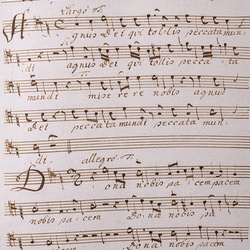 Largo. T.
Agnus Dei qui tollis peccata mun
di agnus Dei qui tollis pecca ta
mundi miserere nobis agnus
Dei peccata mundi peccata mun
di. allegro. T.
Dona nobis pacem pacem
nobis pacem Dona nobis pa
cem Dona nobis